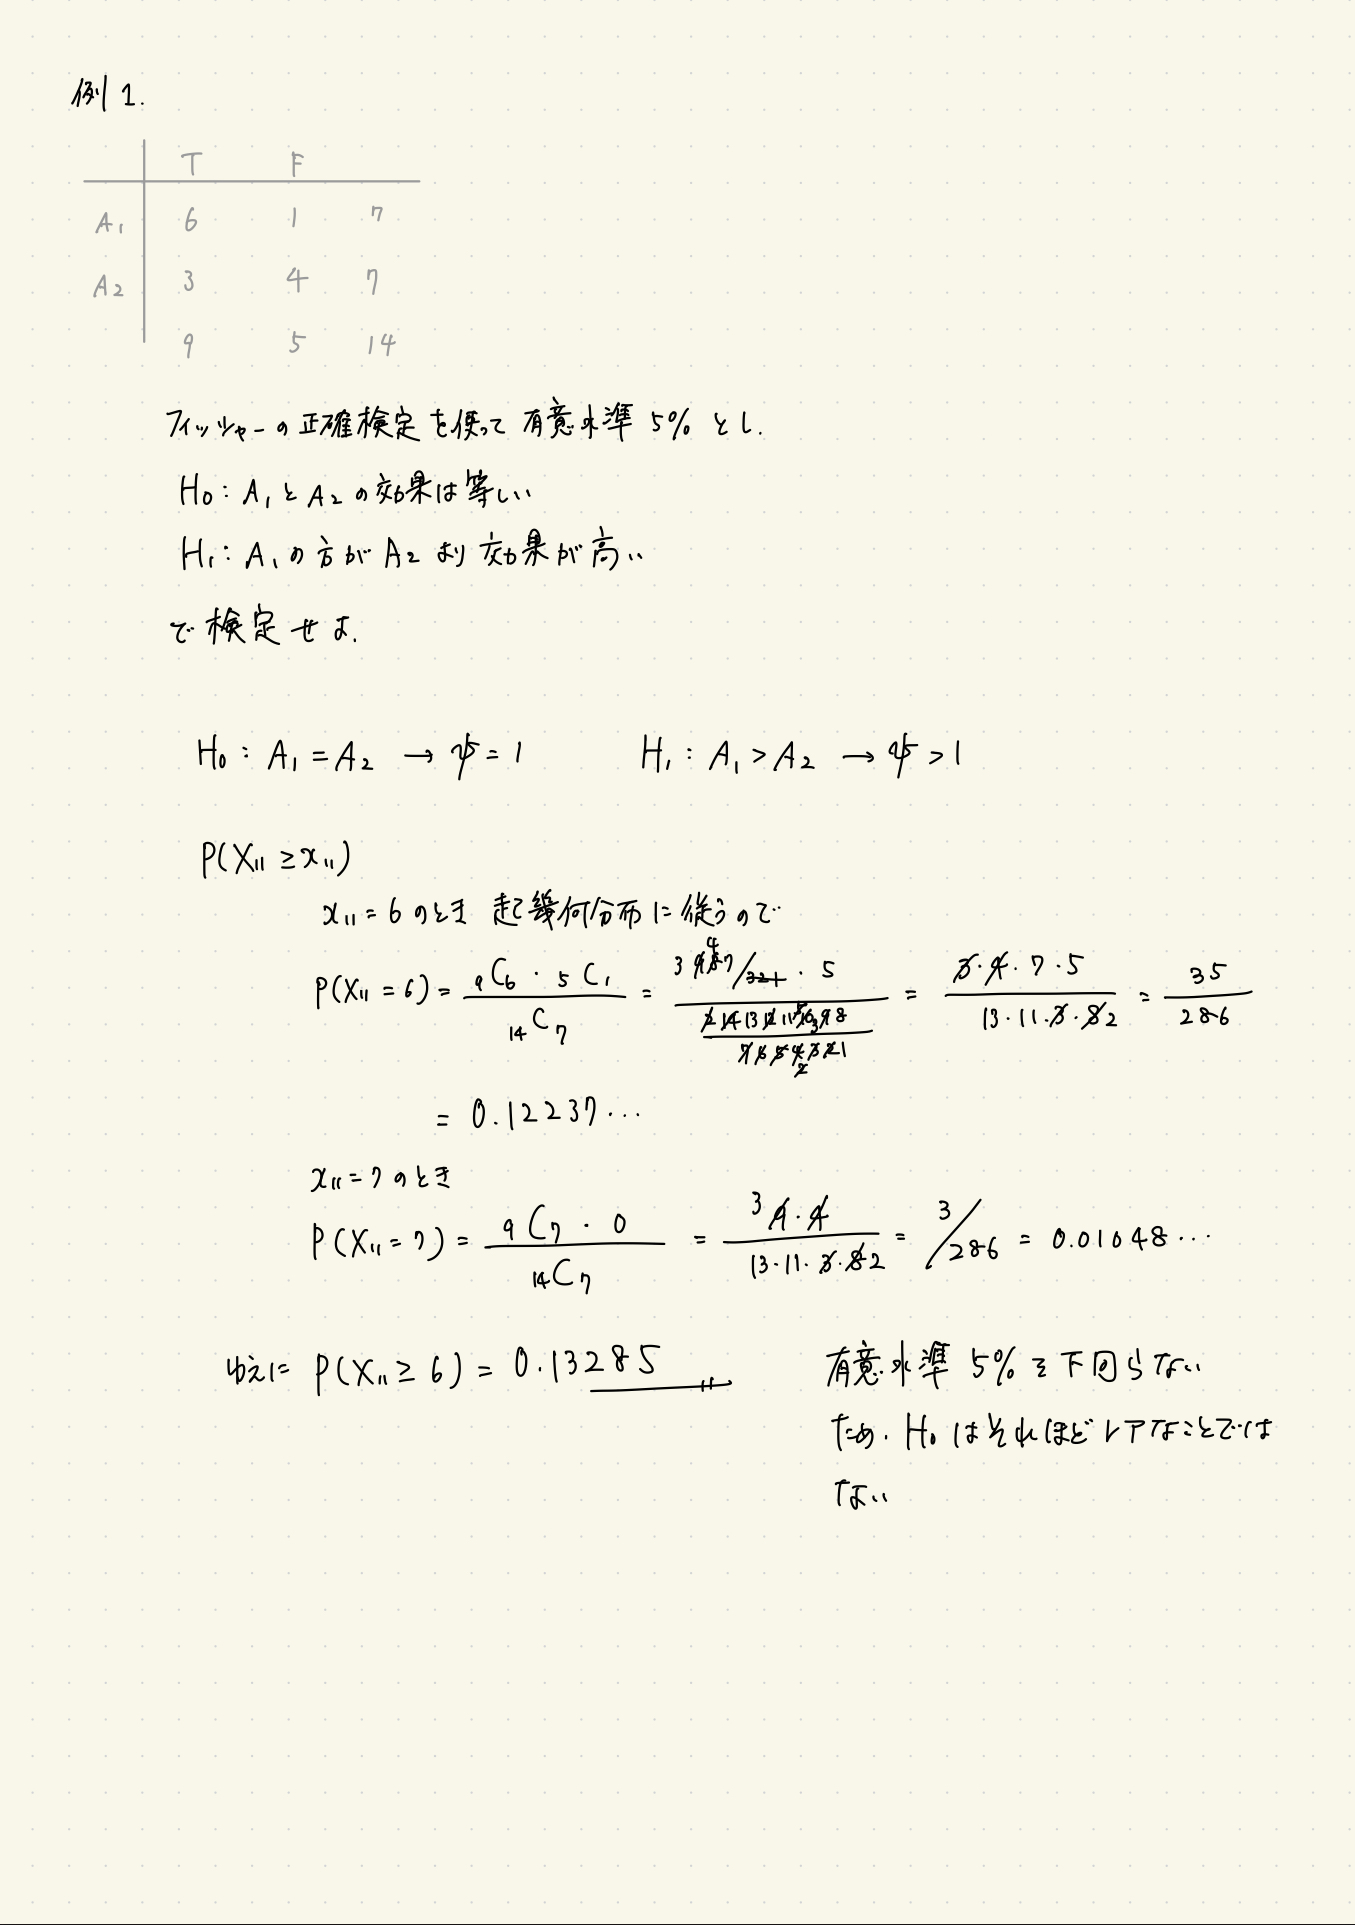 例1.
T F
A₁ 6 1 7
A₂ 3 4 7
9 5 14
フィッシャーの正確検定を使って有意水準5%とし.
H₀:A₁とA₂の効果は等しい
H₁:A₁の方がA₂より効果が高い
で検定せよ.
H₀:A₁=A₂ → ψ=1 H₁:A₁>A₂ → ψ>1
P(X₁₁≥x₁₁)
x₁₁=6のとき 起幾何分布に従うので
P(X₁₁=6)= ₉C₆・₅C₁ / ₁₄C₇ = 3 4 9 8 7/3 2 1・5 / 2 14 13 12 11 10 9 8 / 7 6 5 4 3 2 1 = 3・4・7・5 / 13・11・3・8 2 = 35 / 286
= 0.12237…
x₁₁=7のとき
P(X₁₁=7)= ₉C₇・0 / ₁₄C₇ = 3 9・4 / 13・11・3・8 2 = 3/286 = 0.01048…
ゆえに P(X₁₁≥6)=0.13285 有意水準5%を下回らない
ため.H₀はそれほどレアなことでは
ない